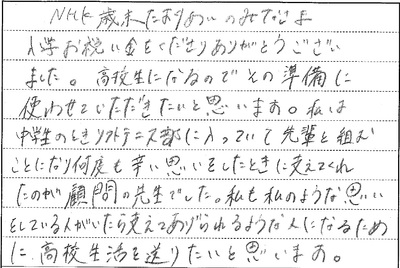 NHK歳末たすけあいのみなさま
入学お祝い金をくださりありがとうござい
ました。高校生になるのでその準備に
使わせていただきたいと思います。私は
中学のときソフトテニス部に入っていて先輩と組む
ことになり何度も辛い思いをしたときに支えてくれ
たのが顧問の先生でした。私も私のような思い
をしている人がいたら支えてあげられるような人になるため
に高校生活を送りたいと思います。